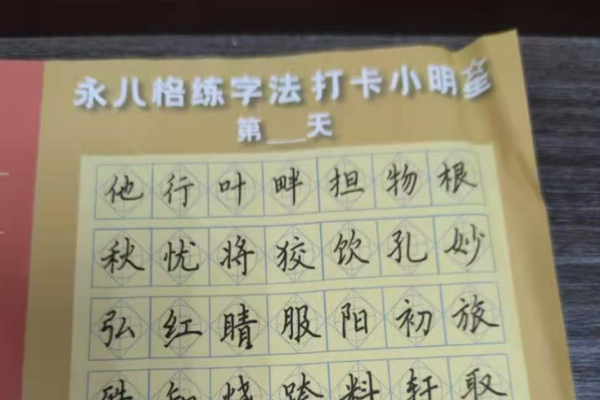 永儿格练字法打卡小明星
第__天
他行叶畔担物根
秋忧将狡饮孔妙
弘红晴服阳初旅
知烧跨料轩取